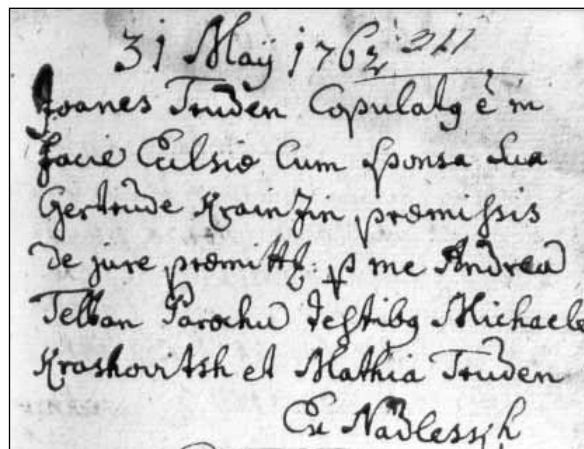 31 Maÿ 1762 211
Joanes Truden Copulatg è in
facie Ecclsie Cum sponsa sua
Gertrude Krainzin præmissis
de jure præmitt: p me Andrea
Telban Parochu testibg Michaele
Krashovitsh et Mathia Truden
Ex Nadlessih